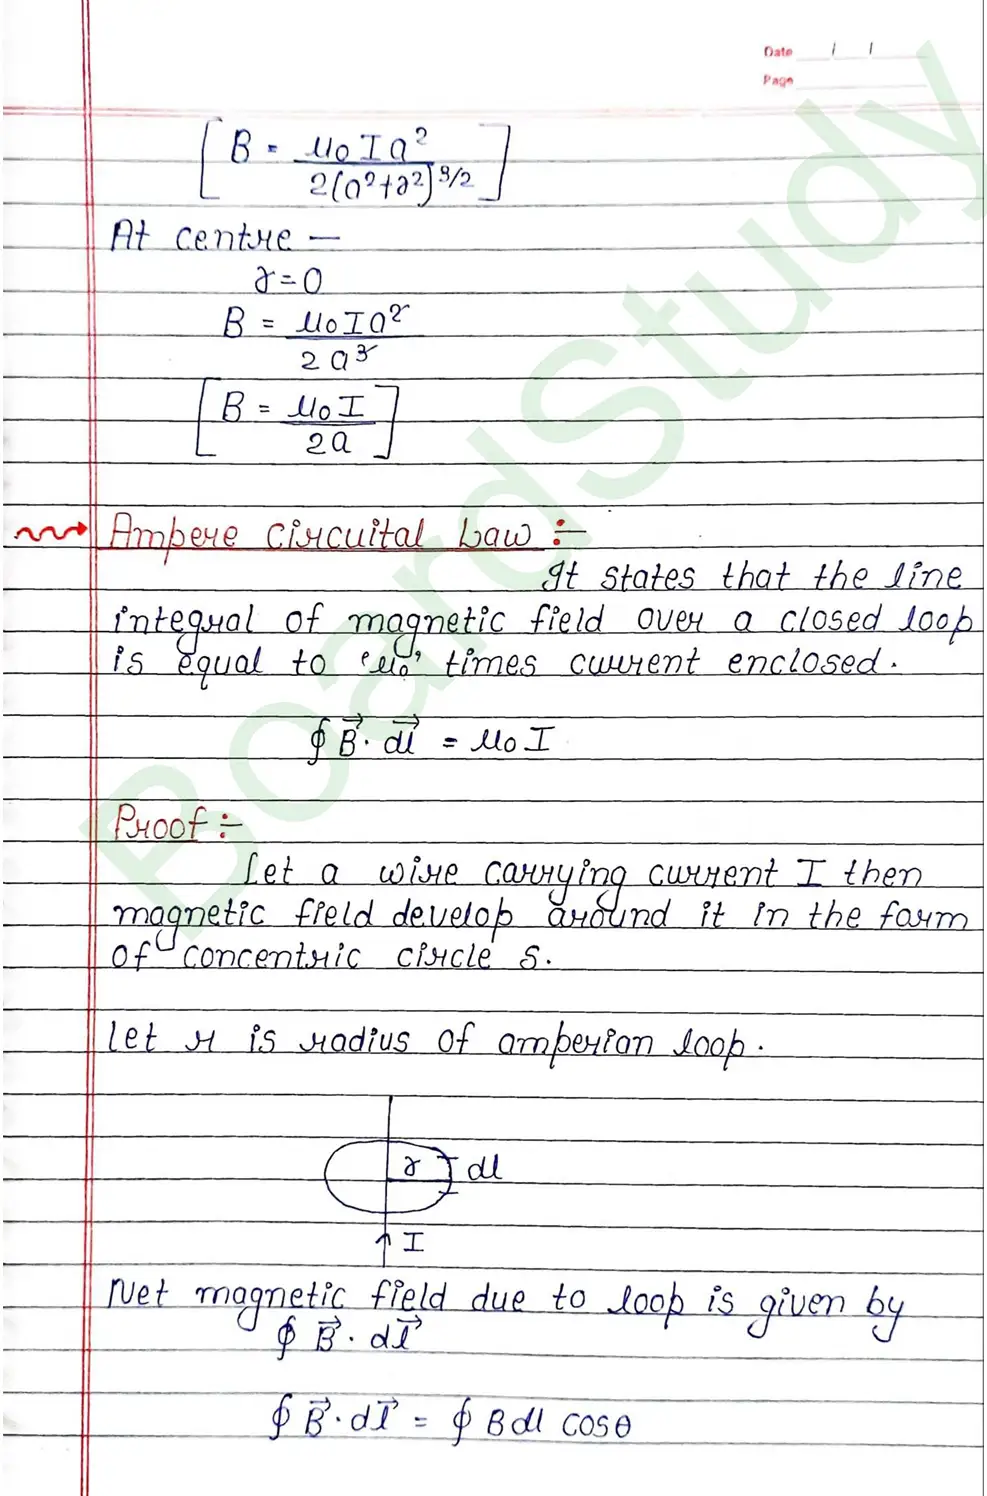 Date / /
Page
[B = μ₀Ia² / 2(a²+r²)^3/2]
At centre —
r=0
B = μ₀Ia² / 2a³
[B = μ₀I / 2a]
Ampere circuital Law :-
It states that the line
integral of magnetic field over a closed loop
is equal to 'μ₀' times current enclosed.
∮ B⃗. dl⃗ = μ₀I
Proof :-
Let a wire carrying current I then
magnetic field develop around it in the form
of concentric circle s.
let r is radius of amperian loop.
r dl
I
Net magnetic field due to loop is given by
∮ B⃗. dl⃗
∮ B⃗. dl⃗ = ∮ Bdl cosθ
BoardStudy